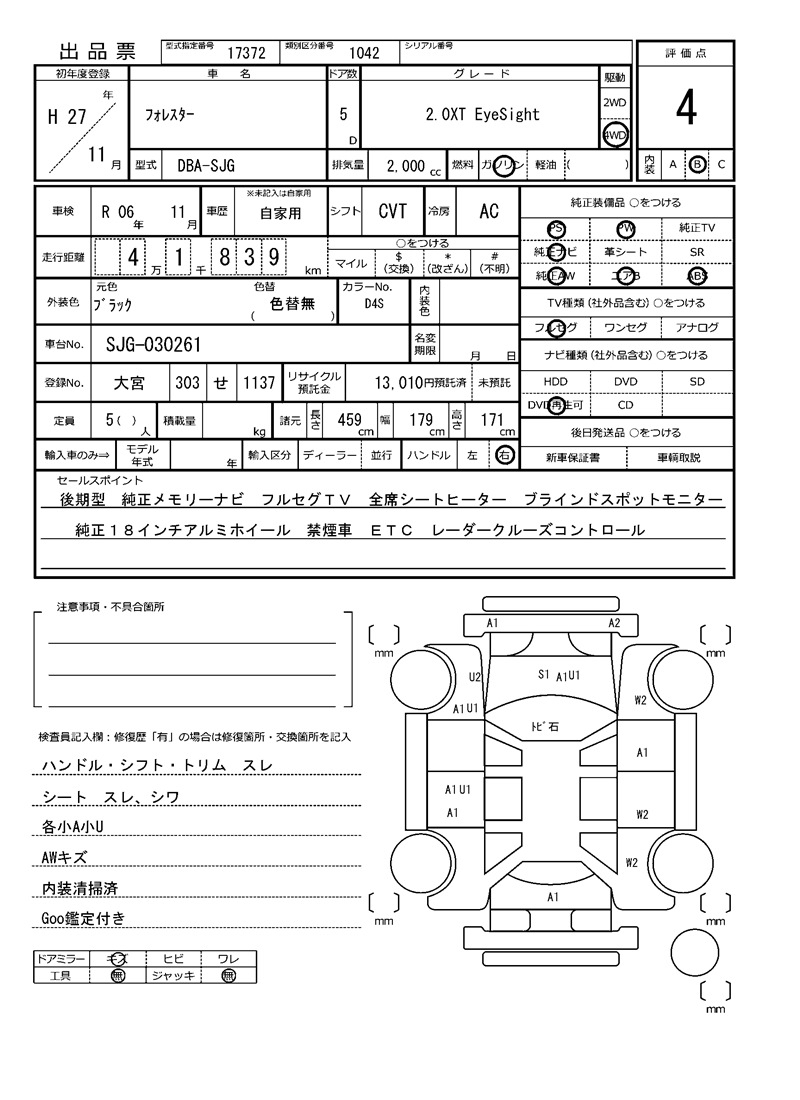 出品票 型式指定番号 17372 類別区分番号 1042 シリアル番号
初年度登録 車名 ドア数 グレード 駆動 評価点
H 27 年 11 月 フォレスター 5 D 2.0XT EyeSight 2WD 4WD 4
型式 DBA-SJG 排気量 2.000 cc 燃料 ガソリン 軽油 ( ) 内装 A B C
車検 R 06 年 11 月 車歴 ※未記入は自家用 自家用 シフト CVT 冷房 AC
走行距離 4 万 1 千 8 3 9 km ○をつける マイル $ (交換) * (改ざん) # (不明)
外装色 元色 ブラック 色替 ( 色替無 ) カラーNo. D4S 内装色
車台No. SJG-030261 名変期限 月 日
登録No. 大宮 303 せ 1137 リサイクル預託金 13,010円預託済 未預託
定員 5 ( ) 人 積載量 kg 諸元 長さ 459 cm 幅 179 cm 高さ 171 cm
輸入車のみ⇒ モデル年式 年 輸入区分 ディーラー 並行 ハンドル 左 右
純正装備品 ○をつける
PS PW 純正TV
純正ナビ 革シート SR
純正AW エアB ABS
TV種類(社外品含む) ○をつける
フルセグ ワンセグ アナログ
ナビ種類(社外品含む) ○をつける
HDD DVD SD
DVD再生可 CD
後日発送品 ○をつける
新車保証書 車輌取説
セールスポイント
後期型 純正メモリーナビ フルセグTV 全席シートヒーター ブラインドスポットモニター
純正18インチアルミホイール 禁煙車 ETC レーダークルーズコントロール
注意事項・不具合箇所
検査員記入欄:修復歴「有」の場合は修復箇所・交換箇所を記入
ハンドル・シフト・トリム スレ
シート スレ、シワ
各小A小U
AWキズ
内装清掃済
Goo鑑定付き
ドアミラー キズ ヒビ ワレ
工具 無 ジャッキ 無
A1 A2
mm mm
U2 S1 A1U1
A1U1 W2
トビ石
A1
A1U1
A1 W2
W2
A1
mm mm
mm